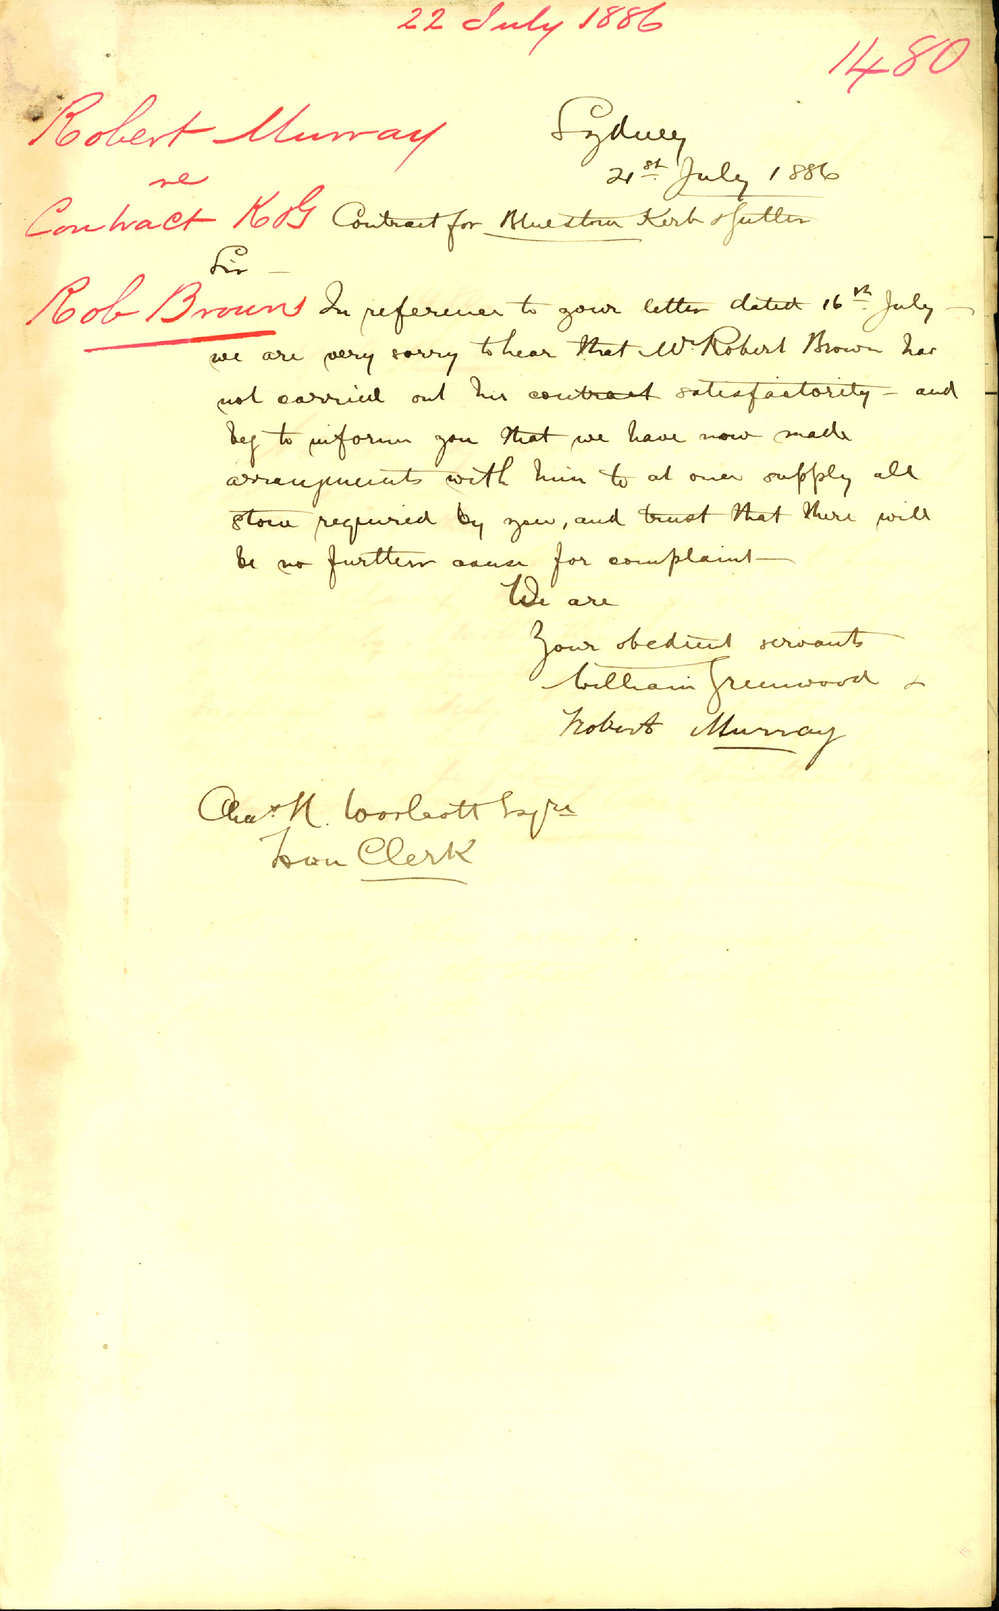 22 July 1886
1480
Robert Murray
re
Contract K & G
Rob Browns
Sydney
21st July 1886
Contract for Bluestone Kerb & Gutter
Sir —
In reference to your letter dated 16th July —
we are very sorry to hear that Mr Robert Brown has
not carried out his contract satisfactority — and
beg to inform you that we have now made
arrangments with him to at once supply all
stone required by you, and trust that there will
be no further cause for complaint —
We are
Your obedient servants
William Greenwood &
Robert Murray
Chas. H. Woolcott Esqre
Town Clerk